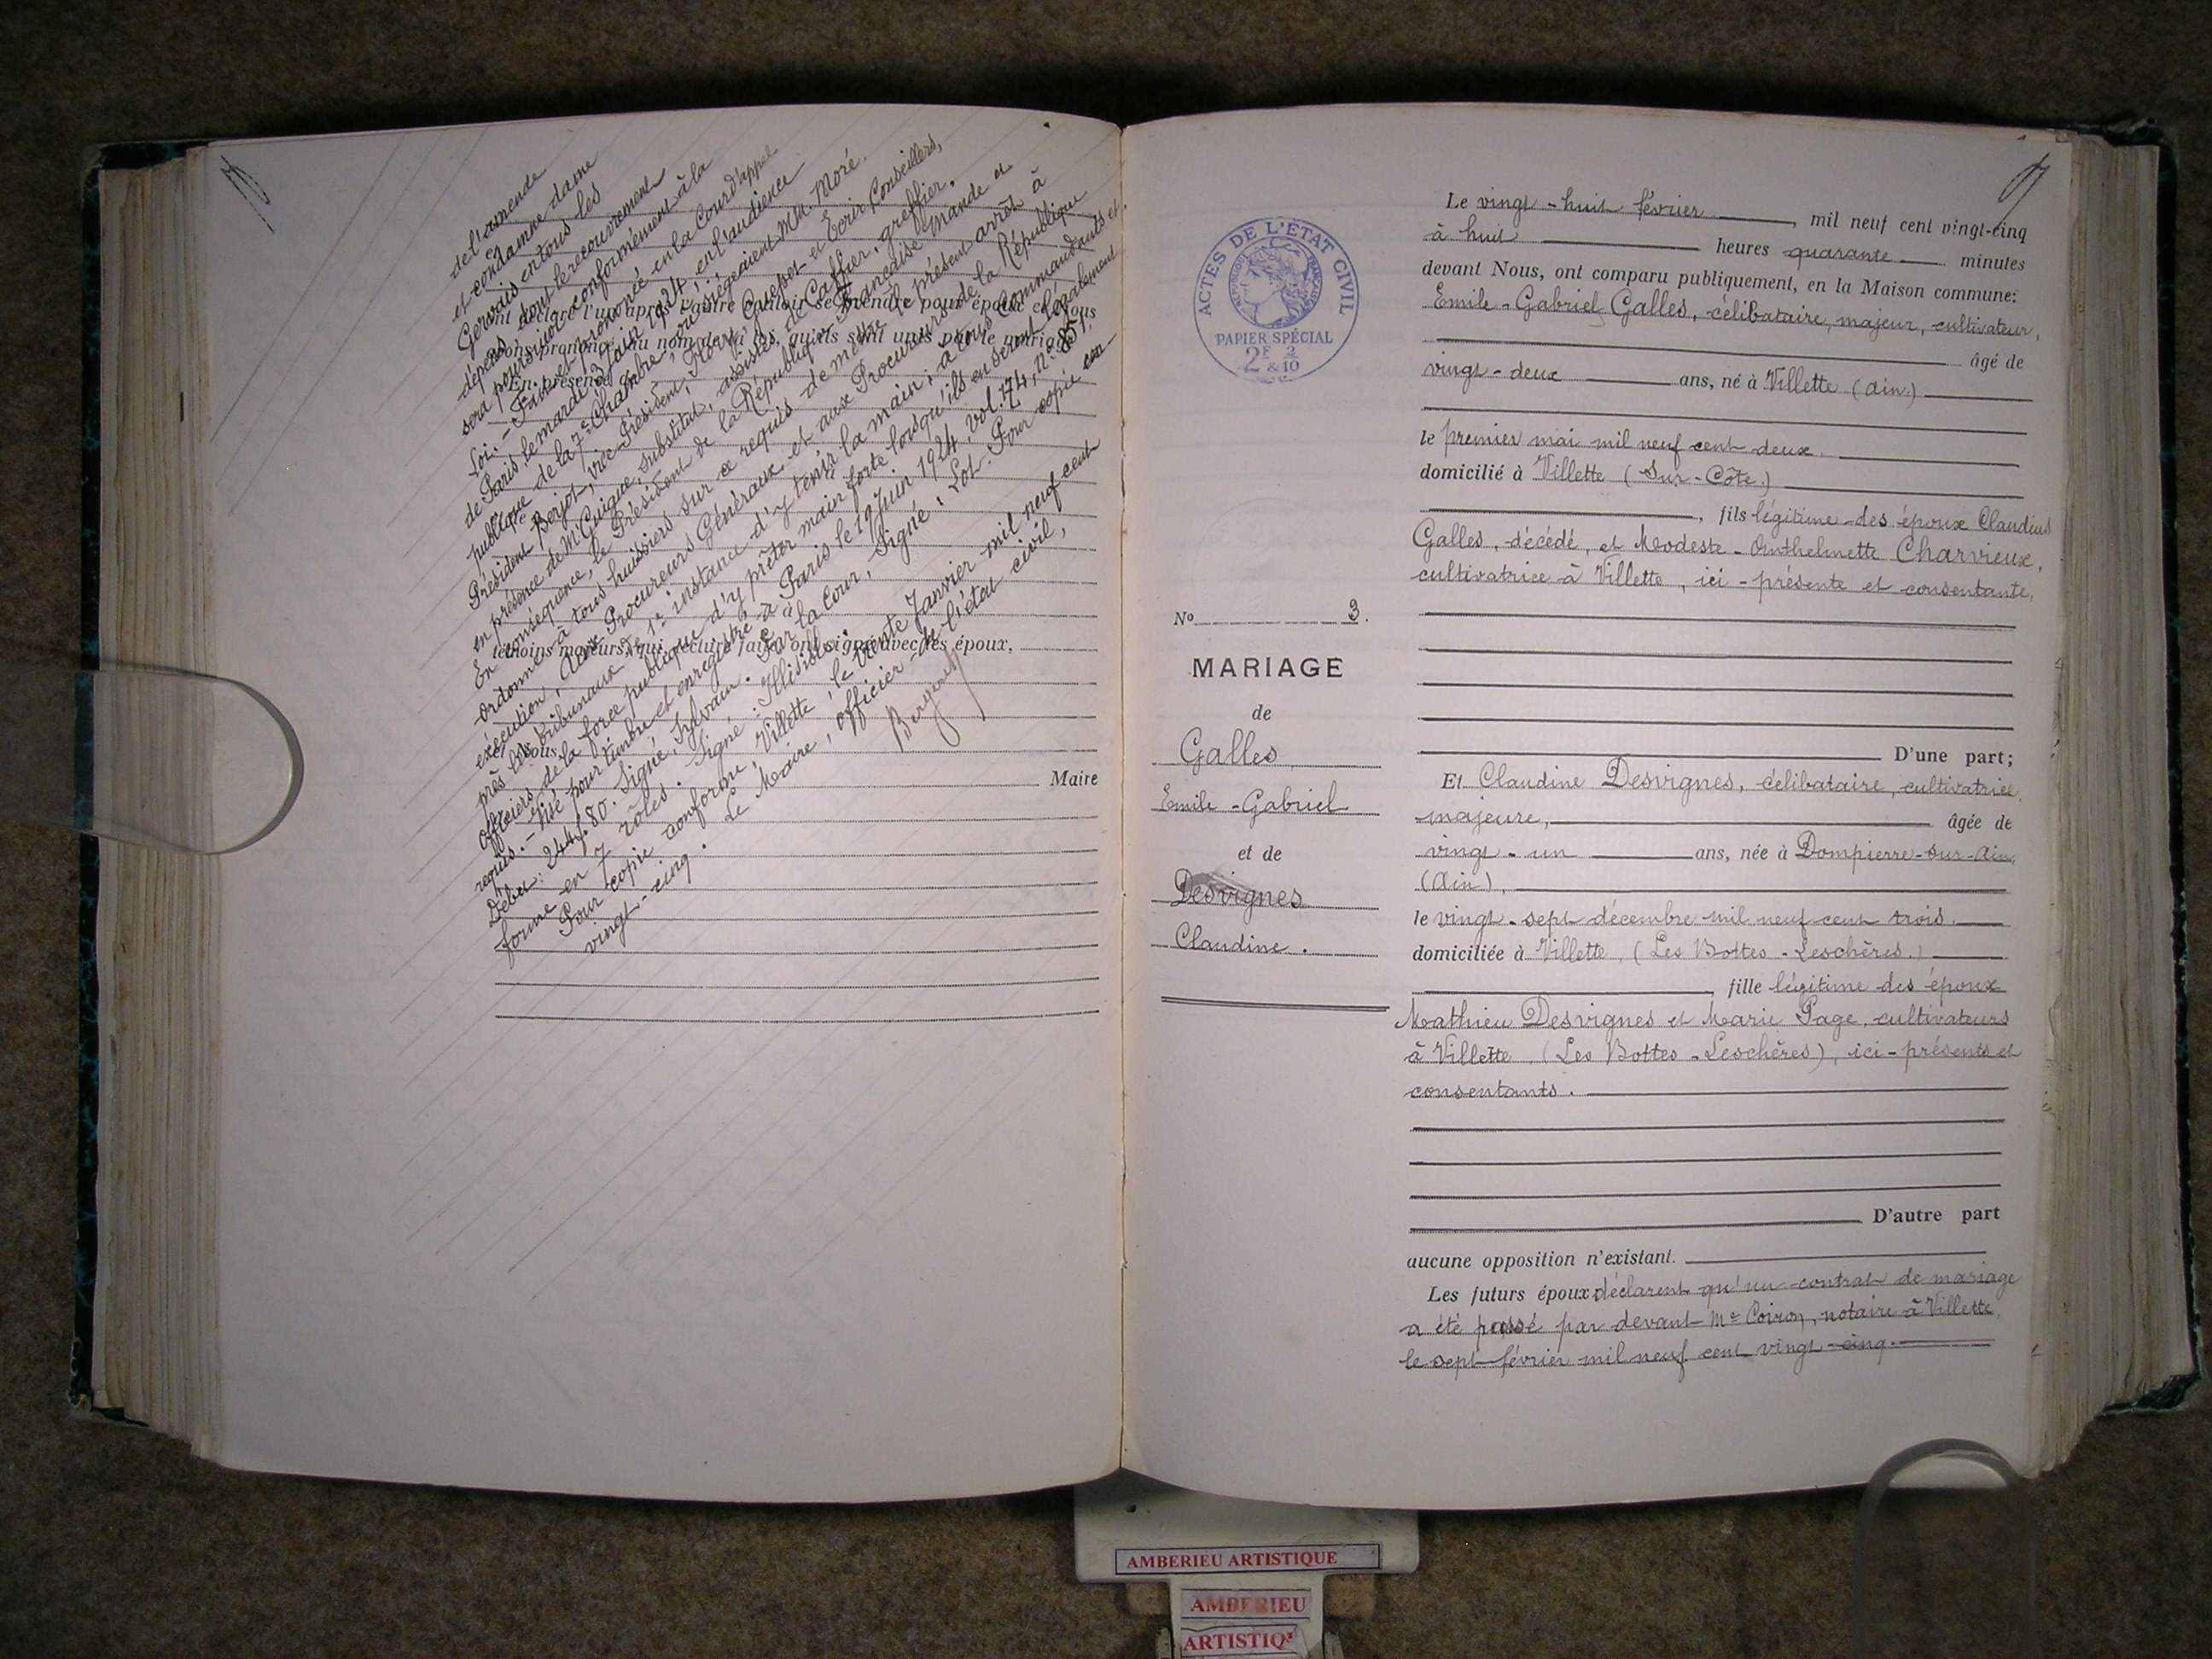 de l'amende
et condamne dame
Gervais en tous les
dépens dont le recouvrement
sera poursuivi conformément à la
Loi. - Fait et prononcé en la Cour d'appel
de Paris, le mardi 3 juin 1924 en l'audience
publique de la 7e Chambre, où siégeaient MM. Moré
Président, Berjot, vice-Président, et Conseillers,
en présence de M. Guigue, substitut, assistés de greffier.
En conséquence, le Président de la République Française Mande et
ordonne à tous huissiers sur ce requis de mettre le présent arrêt à
exécution, aux Procureurs Généraux et aux Procureurs de la République
près les tribunaux de 1re instance d'y tenir la main; à tous commandants et
officiers de la force publique d'y prêter main forte lorsqu'ils en seront légalement
requis. - Visé pour timbre et enregistré à Paris le 19 Juin 1924, vol. 174, n° 851.
Débet: 244f.80. Signé, Sylvain. Par la Cour, Signé: Lot. Pour copie con-
forme en 7 rôles. Signé: Illisible.
Pour copie conforme, Villette, le trente Janvier mil neuf cent
vingt-cinq. Le Maire, officier de l'état civil,
ont déclaré l'un après l'autre vouloir se prendre pour époux et Nous
avons prononcé au nom de la loi, qu'ils sont unis par le mariage.
En présence de
témoins majeurs, qui, lecture faite, ont signé avec les époux,
et Nous
Maire
ACTES DE L'ÉTAT CIVIL
RÉPUBLIQUE FRANÇAISE
PAPIER SPÉCIAL
2F & 2/10
No 3.
MARIAGE
de
Galles
Emile-Gabriel
et de
Desvignes
Claudine.
Le vingt-huit février, mil neuf cent vingt-cinq
à huit heures quarante minutes
devant Nous, ont comparu publiquement, en la Maison commune:
Emile-Gabriel Galles, célibataire, majeur, cultivateur,
âgé de
vingt-deux ans, né à Villette (Ain.)
le premier mai mil neuf cent deux.
domicilié à Villette (Sur-Côte.)
, fils légitime des époux Claudius
Galles, décédé, et Modeste-Anthelmette Charvieux,
cultivatrice à Villette, ici-présente et consentante,
D'une part;
Et Claudine Desvignes, célibataire, cultivatrice
majeure, âgée de
vingt-un ans, née à Dompierre-sur-Ain,
(Ain),
le vingt-sept décembre mil neuf cent trois.
domiciliée à Villette, (Les Bottes-Leschères.)
, fille légitime des époux
Mathieu Desvignes et Marie Page, cultivateurs
à Villette (Les Bottes-Leschères), ici-présents et
consentants.
D'autre part
aucune opposition n'existant.
Les futurs époux déclarent qu'un contrat de mariage
a été passé par devant Me Coiron, notaire à Villette,
le sept février mil neuf cent vingt-cinq.
AMBERIEU ARTISTIQUE
AMBERIEU
ARTISTIQ